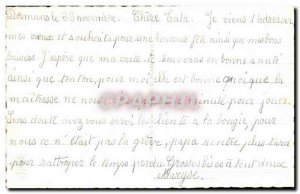 Dormans le 29 novembre. Chère Tata. Je viens t'adresser
mes vœux et souhaits pour une heureuse fête ainsi que mes bons
baisers. J'espère que ma carte te trouveras en bonne santé
ainsi que tonton, pour moi, elle est bonne quoique la
maîtresse ne nous minute pour jouer.
Sans doute avez vous servi les clients à la bougie, pour
nous ce n'était pas la grève, papa rentre plus tard
pour rattraper le temps perdu. Gros bisous à tout deux
Maryse.